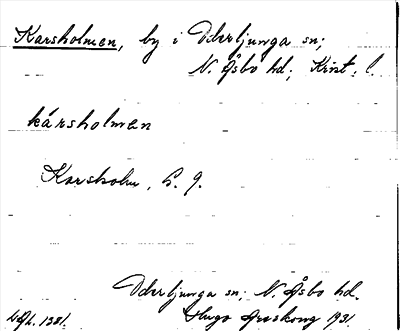 Karsholmen, by i Oderljunga sn;
N. Åsbo hd; Krist. l.
kársholmen
Karsholm, h. g.
Oderljunga sn; N. Åsbo hd.
Hugo Areskoug 1931.